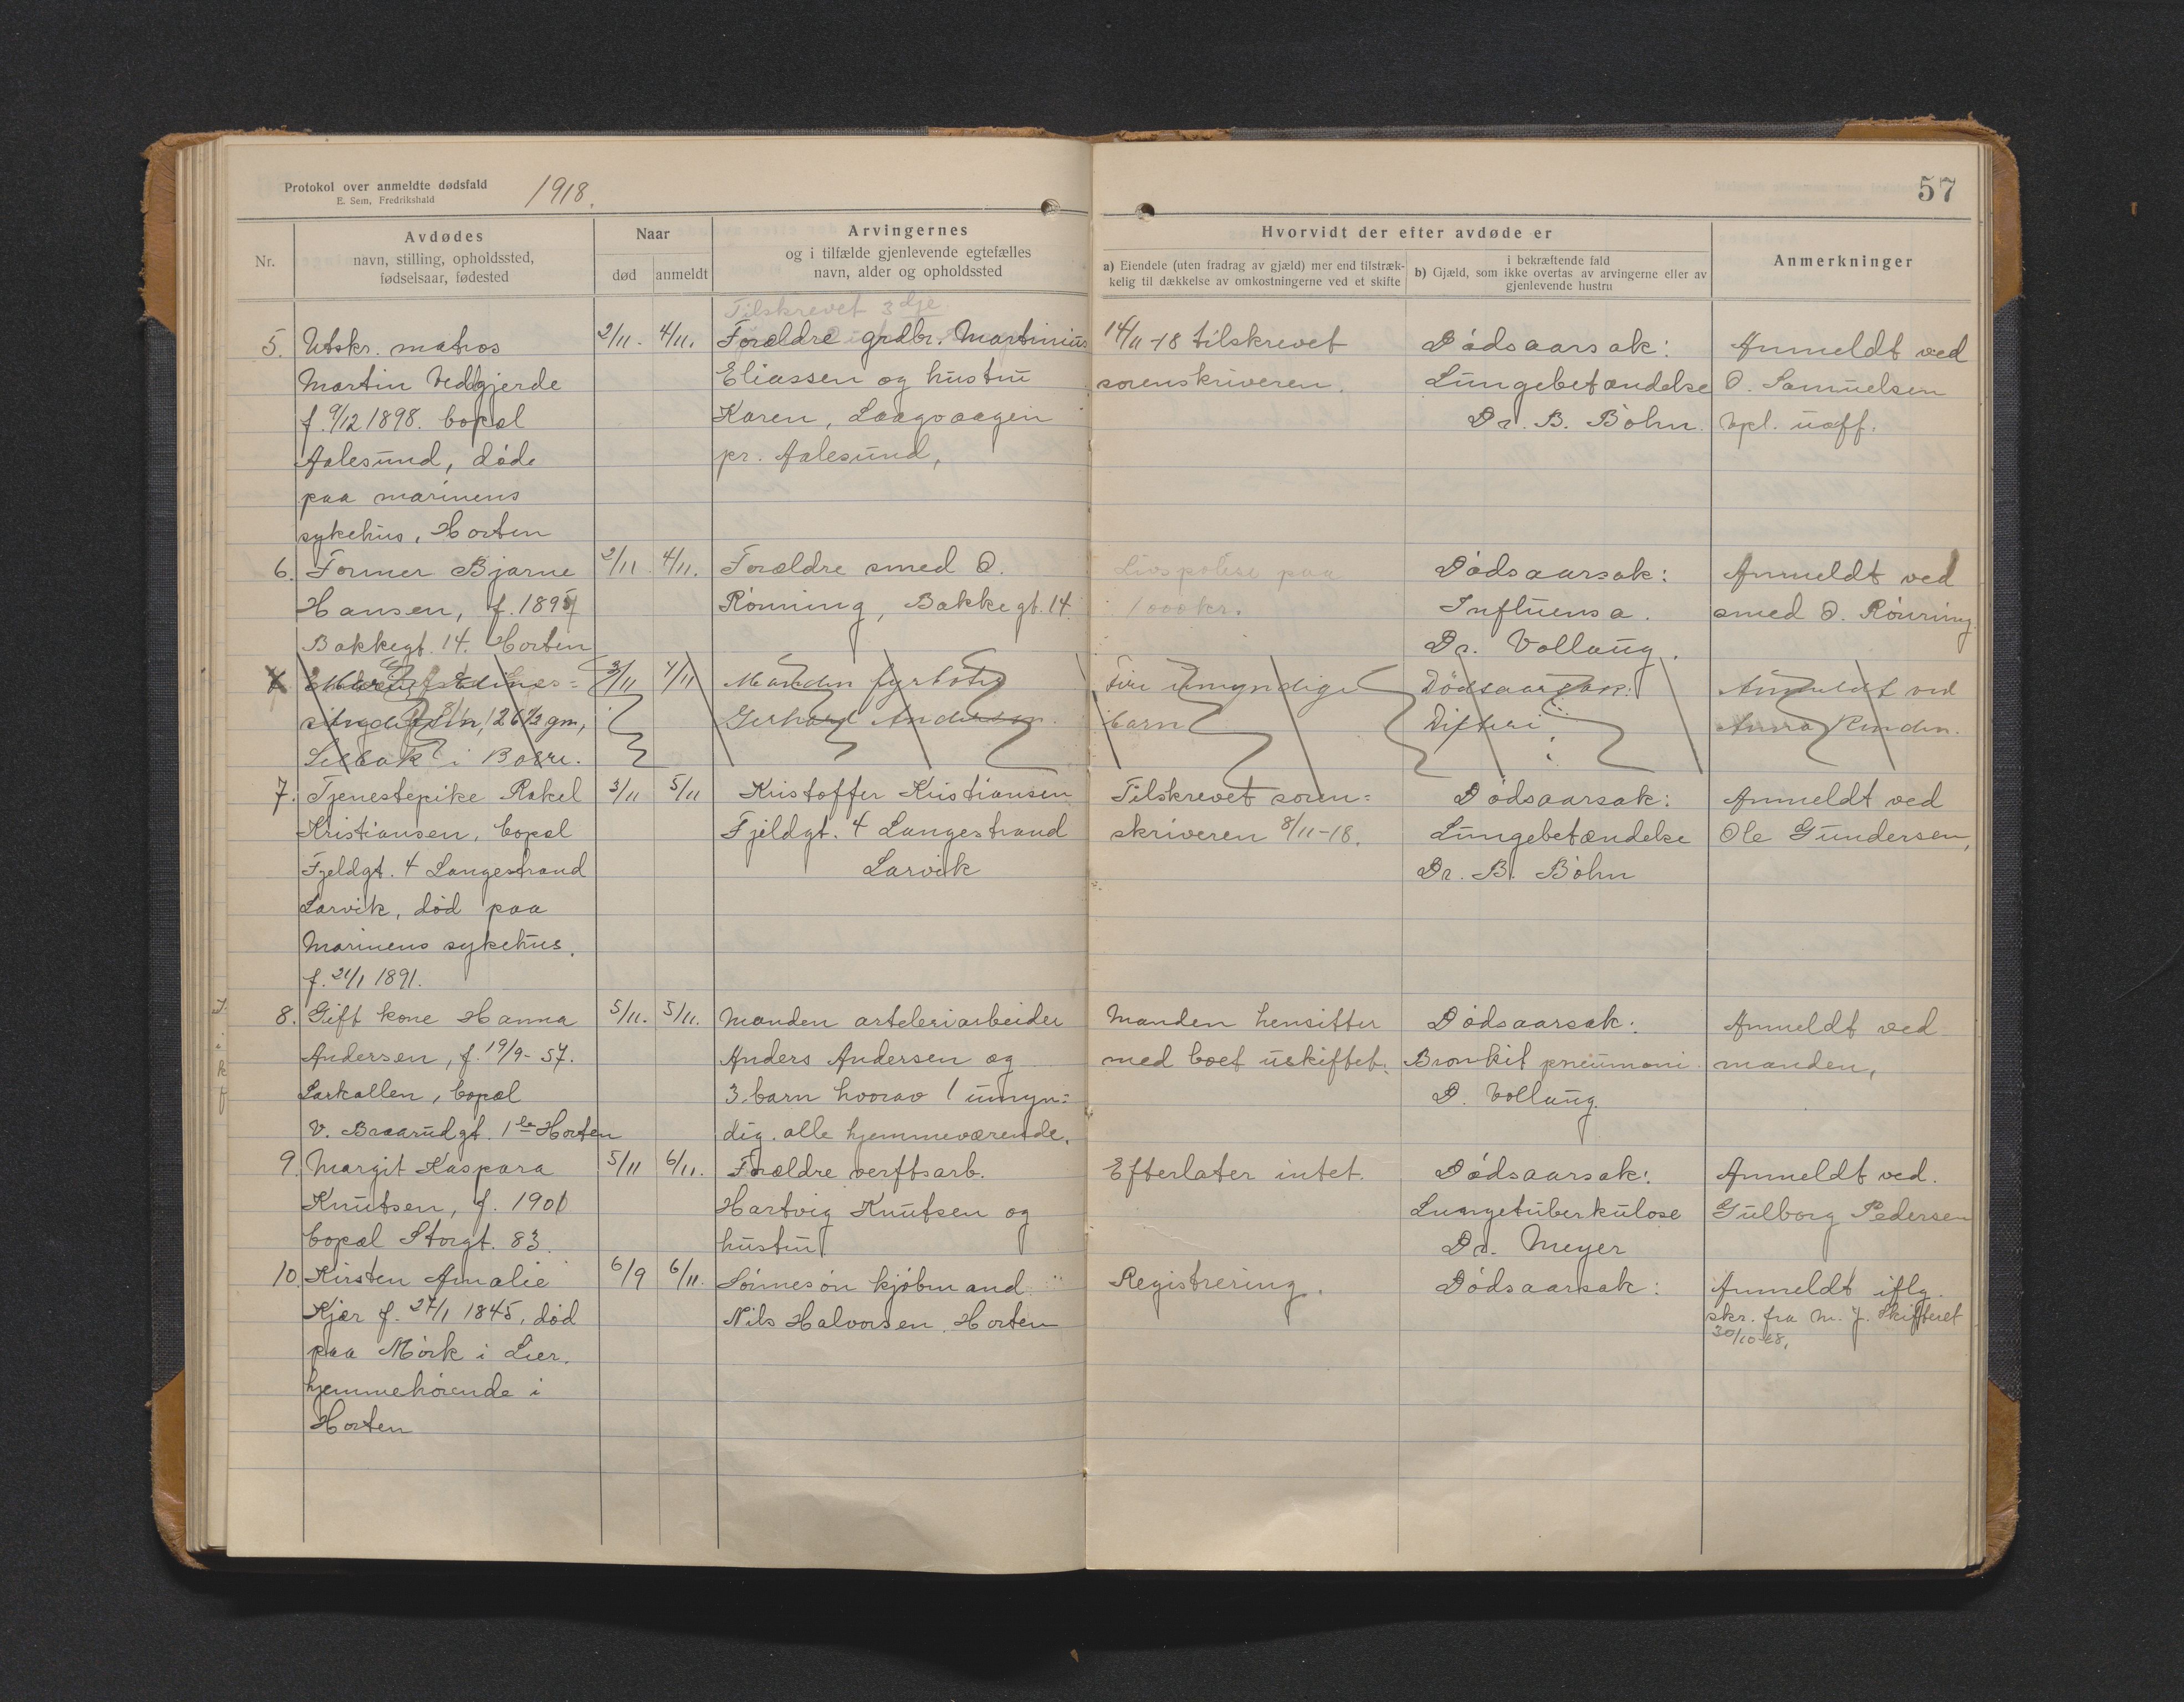 Protokol over anmeldte dødsfald
E. Sem, Fredrikshald
1918.
57
Nr.
Avdødes
navn, stilling, opholdssted,
fødselsaar, fødested
Naar
død
anmeldt
Arvingernes
og i tilfælde gjenlevende egtefælles
navn, alder og opholdssted
Hvorvidt der efter avdøde er
a) Eiendele (uten fradrag av gjæld) mer end tilstræk-
kelig til dækkelse av omkostningerne ved et skifte
i bekræftende fald
b) Gjæld, som ikke overtas av arvingerne eller av
gjenlevende hustru
Anmerkninger
5.
Utskr. matros
Martin Vedgjerde
f. 9/12 1898. bopæl
Aalesund, døde
paa marinens
sykehus, Horten
2/11.
4/11.
Tilskrevet 3dje
Forældre grdbr. Martinius
Eliassen og hustru
Karen, Laagvaagen
pr. Aalesund,
14/11-18 tilskrevet
sorenskriveren.
Dødsaarsak:
Lungebetændelse
Dr. B. Bøhn.
Anmeldt ved
O. Samuelsen
vpl. uoff.
6.
Former Bjarne
Hansen, f. 1897
Bakkegt. 14. Horten
2/11
4/11.
Forældre smed O.
Rønning, Bakkegt. 14
Livspolise paa
1000 kr.
Dødsaarsak:
Influensa.
Dr. Vollaug.
Anmeldt ved
smed O. Rønning.
3/11
4/11
26 1/2 gm,
i Borre.
Manden fyrbøter
Gerhard Andersen.
Fire umyndige
barn
Dødsaarsak:
Difteri
Anmeldt ved
Anna
7.
Tjenestepike Rakel
Kristiansen, bopæl
Fjeldgt. 4 Langestrand
Larvik, død paa
Marinens sykehus.
f. 21/1 1891.
3/11
5/11
Kristoffer Kristiansen
Fjeldgt. 4 Langestrand
Larvik
Tilskrevet soren=
skriveren 8/11-18.
Dødsaarsak:
Lungebetændelse
Dr. B. Bøhn
Anmeldt ved
Ole Gundersen,
8.
Gift kone Hanna
Andersen, f. 19/9-57.
Larkollen, bopæl
V. Braarudgt. 1 b Horten
5/11.
5/11.
Manden arteleriarbeider
Anders Andersen og
3 barn hvorav 1 umyn=
dig. alle hjemmeværende.
Manden hensitter
med boet uskiftet.
Dødsaarsak:
Bronkit pneumoni.
D. Vollaug.
Anmeldt ved
manden,
9.
Margit Kaspara
Knutsen, f. 1901
bopæl Storgt. 83.
5/11
6/11.
Forældre verftsarb.
Hartvig Knutsen og
hustru
Efterlater intet.
Dødsaarsak:
Lungetuberkulose
Dr. Meyer
Anmeldt ved.
Gulborg Pedersen
10.
Kirsten Amalie
Kjær f. 27/1 1845, død
paa Mørk i Lier.
hjemmehørende i
Horten
6/9
6/11.
Sønnesøn kjøbmand
Nils Halvorsen, Horten
Registrering.
Dødsaarsak:
Anmeldt iflg.
skr. fra M. J. Skifteret
30/10-18.